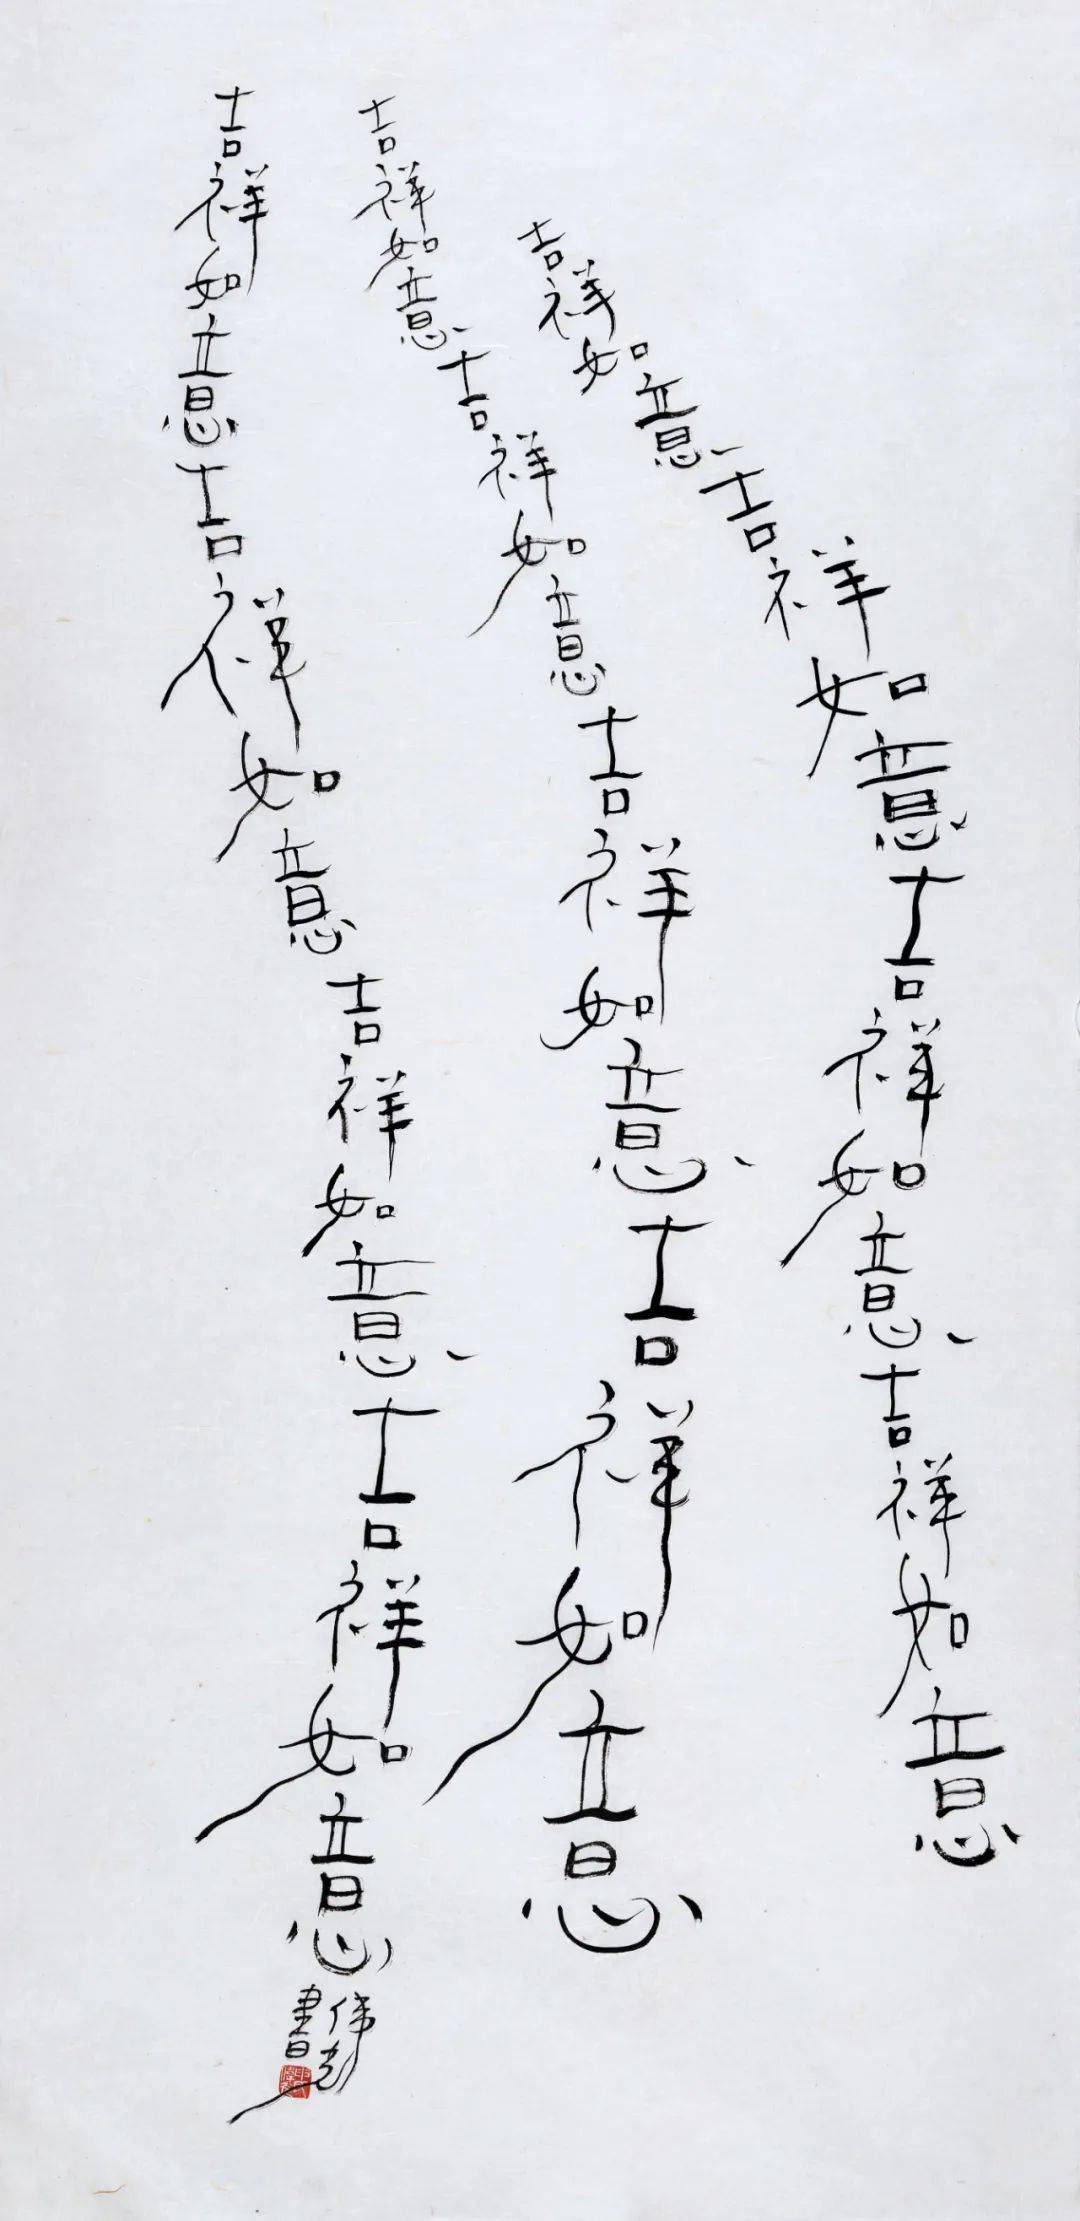 吉祥如意吉祥如意吉祥如意吉祥如意
吉祥如意吉祥如意吉祥如意吉祥如意
吉祥如意吉祥如意吉祥如意吉祥如意
伟光
書